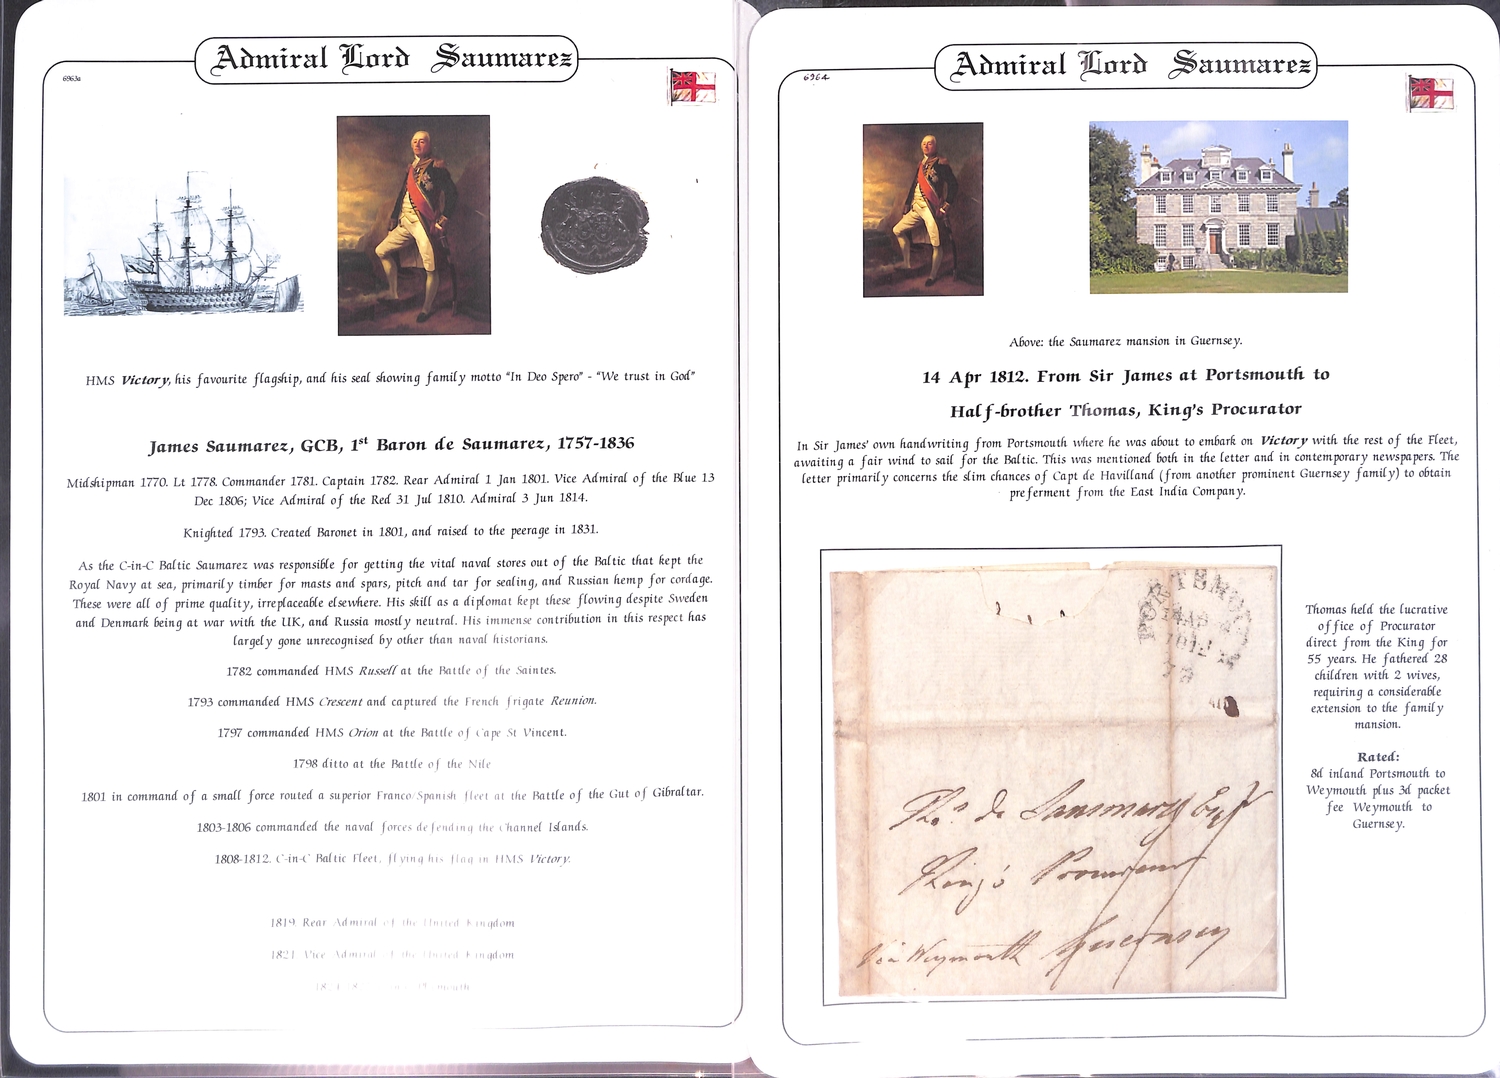 Admiral Lord Saumarez
6963a
HMS Victory, his favourite flagship, and his seal showing family motto "In Deo Spero" - "We trust in God"
James Saumarez, GCB, 1st Baron de Saumarez, 1757-1836
Midshipman 1770. Lt 1778. Commander 1781. Captain 1782. Rear Admiral 1 Jan 1801. Vice Admiral of the Blue 13
Dec 1806; Vice Admiral of the Red 31 Jul 1810. Admiral 3 Jun 1814.
Knighted 1793. Created Baronet in 1801, and raised to the peerage in 1831.
As the C-in-C Baltic Saumarez was responsible for getting the vital naval stores out of the Baltic that kept the
Royal Navy at sea, primarily timber for masts and spars, pitch and tar for sealing, and Russian hemp for cordage.
These were all of prime quality, irreplaceable elsewhere. His skill as a diplomat kept these flowing despite Sweden
and Denmark being at war with the UK, and Russia mostly neutral. His immense contribution in this respect has
largely gone unrecognised by other than naval historians.
1782 commanded HMS Russell at the Battle of the Saintes.
1793 commanded HMS Crescent and captured the French frigate Reunion.
1797 commanded HMS Orion at the Battle of Cape St Vincent.
1798 ditto at the Battle of the Nile
1801 in command of a small force routed a superior Franco/Spanish fleet at the Battle of the Gut of Gibraltar.
1803-1806 commanded the naval forces defending the Channel Islands.
1808-1812. C-in-C Baltic Fleet, flying his flag in HMS Victory.
1819. Rear Admiral of the United Kingdom
1821 Vice Admiral of the United Kingdom
Admiral Lord Saumarez
6964
Above: the Saumarez mansion in Guernsey.
14 Apr 1812. From Sir James at Portsmouth to
Half-brother Thomas, King's Procurator
In Sir James' own handwriting from Portsmouth where he was about to embark on Victory with the rest of the Fleet,
awaiting a fair wind to sail for the Baltic. This was mentioned both in the letter and in contemporary newspapers. The
letter primarily concerns the slim chances of Capt de Havilland (from another prominent Guernsey family) to obtain
preferment from the East India Company.
PORTSMOU
73
Thos. de Sausmarez Esqr
King's Procureur
Via Weymouth Guernsey
Thomas held the lucrative
office of Procurator
direct from the King for
55 years. He fathered 28
children with 2 wives,
requiring a considerable
extension to the family
mansion.
Rated:
8d inland Portsmouth to
Weymouth plus 3d packet
fee Weymouth to
Guernsey.